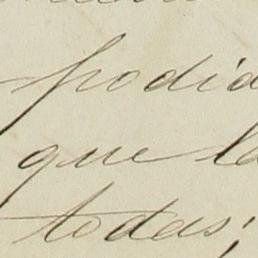 podid
que la
todas;